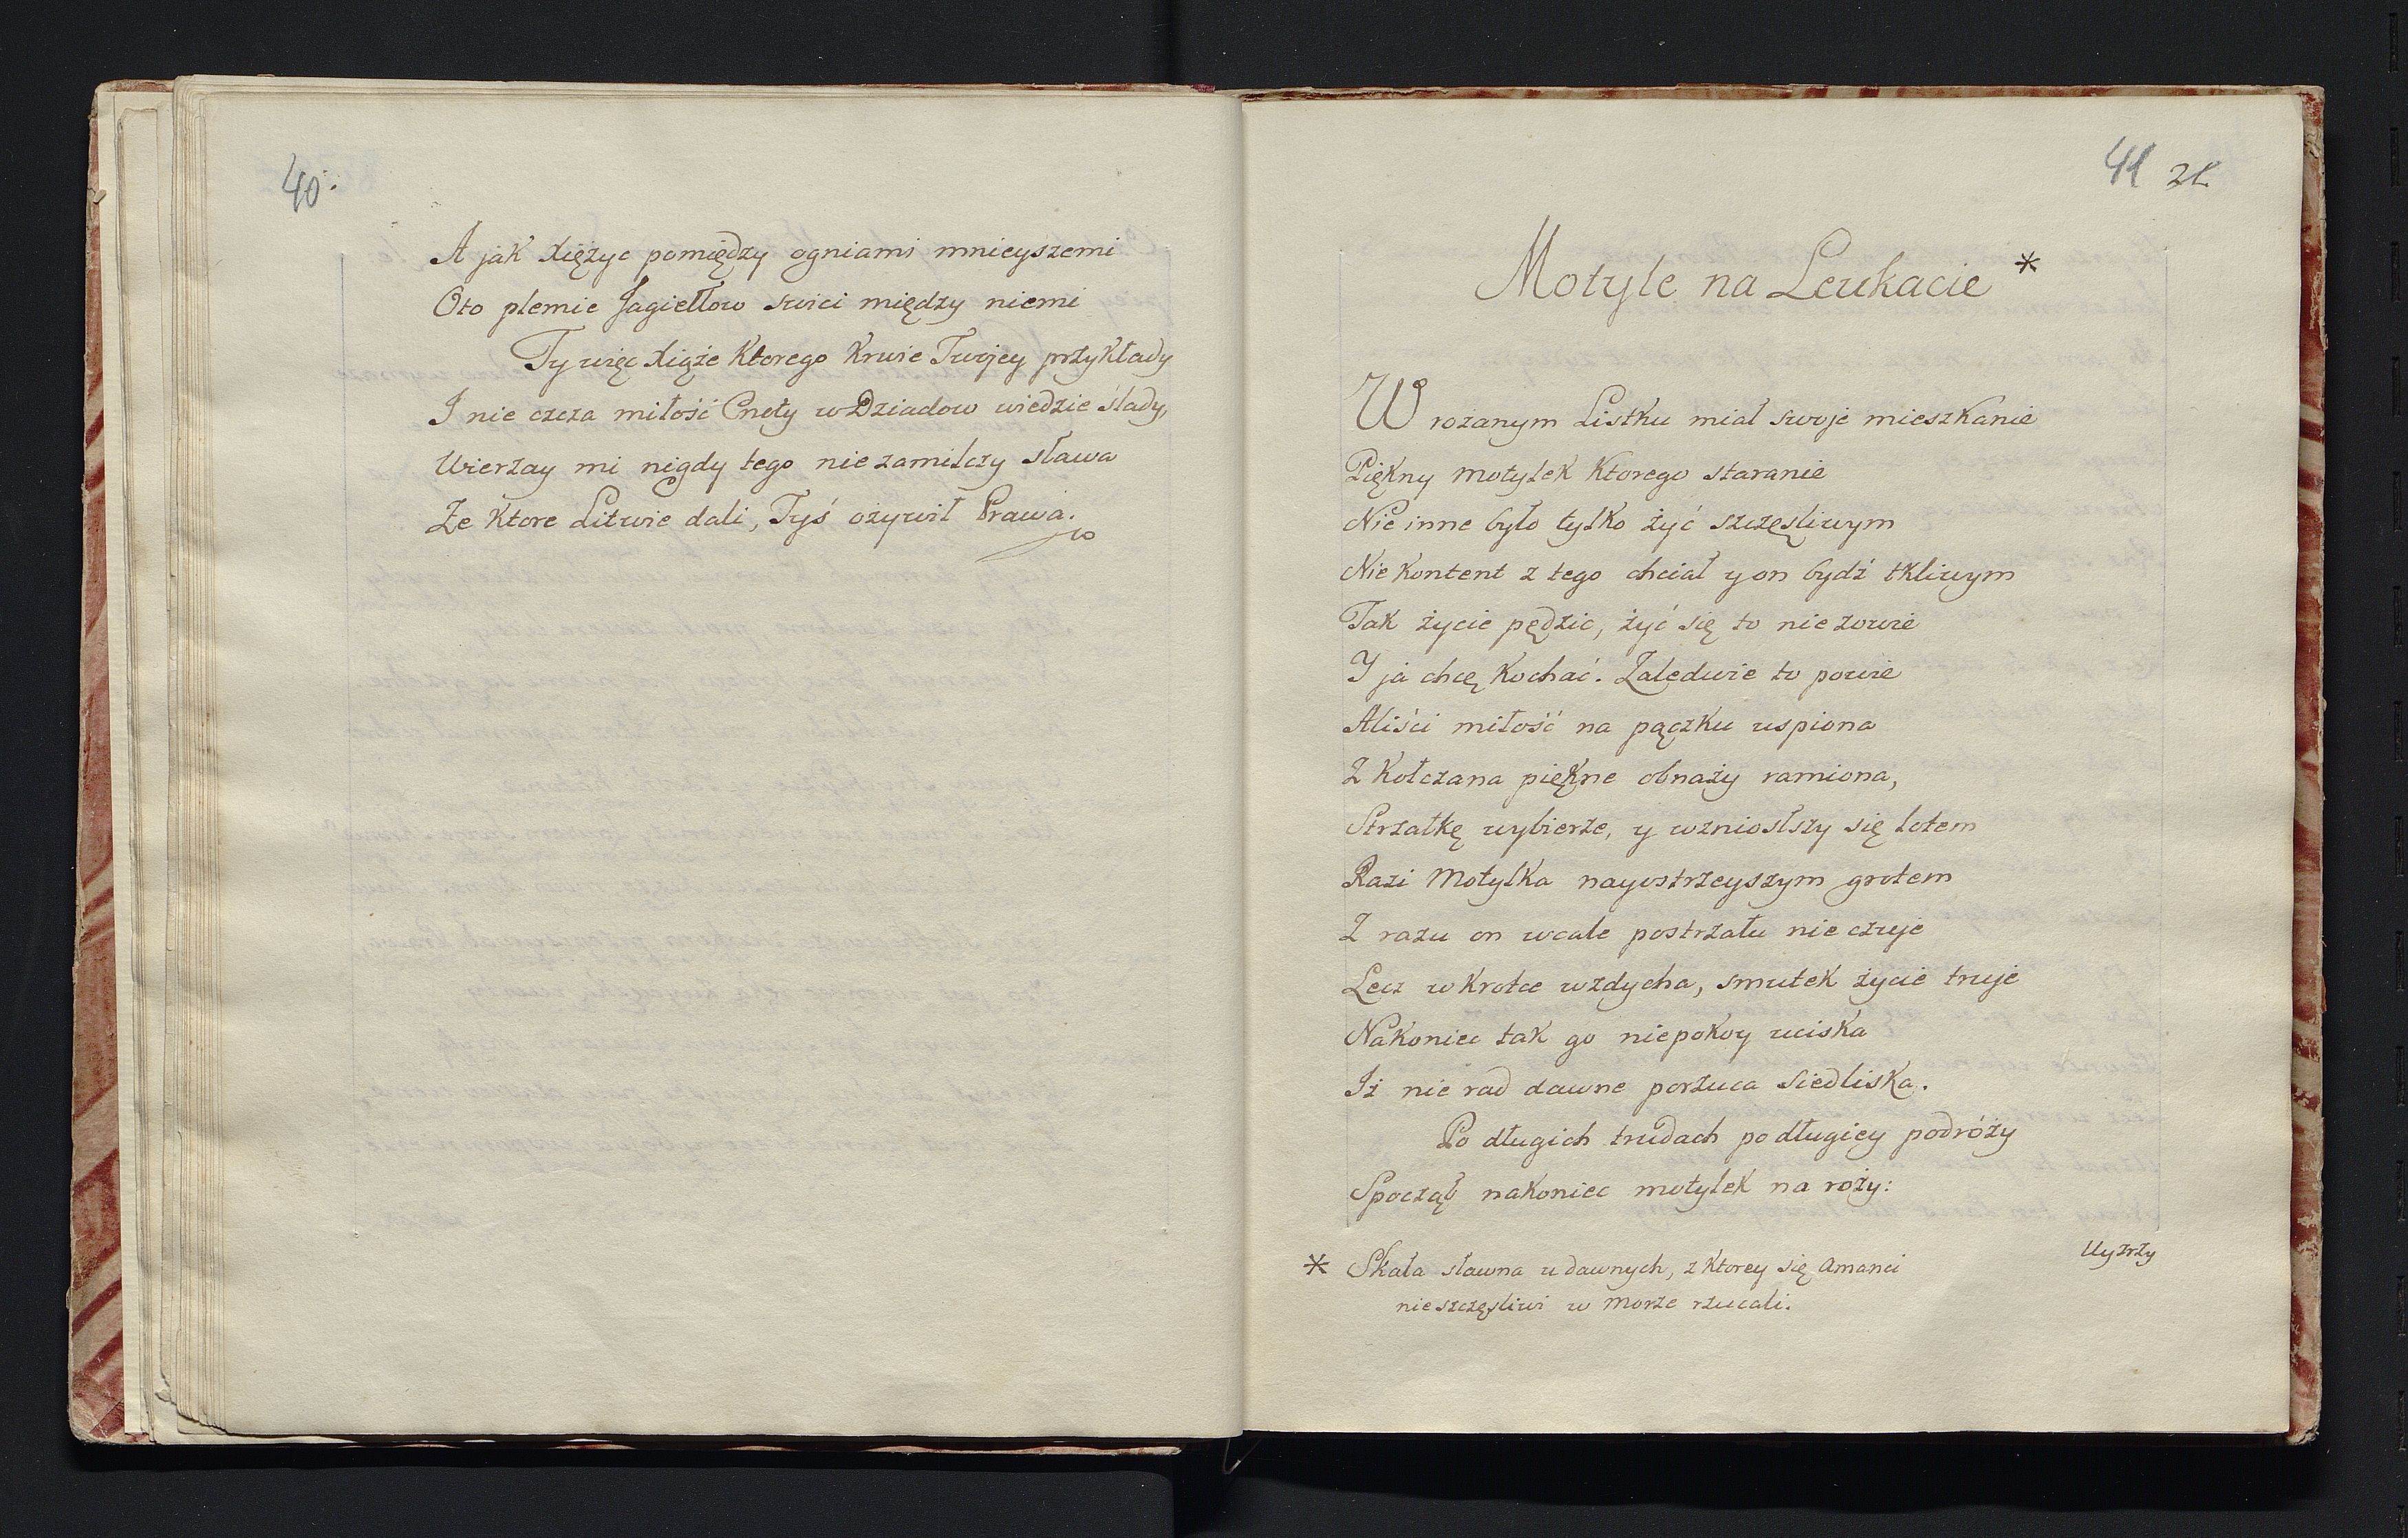 40.
A jak Xiężyc pomiędzy ogniami mnieyszemi
Oto plemie Jagiełłow swici między niemi
Ty więc Xiąże Ktorego Krwie Twojey przykłady
I nie czcza miłość Cnoty w Dziadow wiedzie ślady,
Wierzay mi nigdy tego nie zamilczy sława
Ze Ktore Litwie dali, Tyś ożywił Prawa.
41 21.
Motyle na Leukacie *
W rożanym Listku miał swoje mieszkanie
Piękny motylek Ktorego staranie
Nie inne było tylko żyć szczęsliwym
Nie kontent z tego chciał y on bydź tkliwym
Tak życie pędzic, żyć się to nie zowie
Y ja chcę Kochać. Zaledwie to powie
Aliści miłość na pączku uspiona
Z Kołczana piękne obnaży ramiona,
Strzałkę wybierze, y wzniosłszy się lotem
Razi Motylka nayostrzeyszym grotem
Z razu on wcale postrzału nie czuje
Lecz w krotce wzdycha, smutek życie truje
Nakoniec tak go niepokoy uciska
Iż nie rad dawne porzuca Siedliska.
Po długich trudach po długiey podróży
Spoczął nakoniec motylek na roży:
Uyzrzy
* Skała sławna u dawnych, z Ktorey się Amanci
nieszczęsliwi w Morze rzucali.